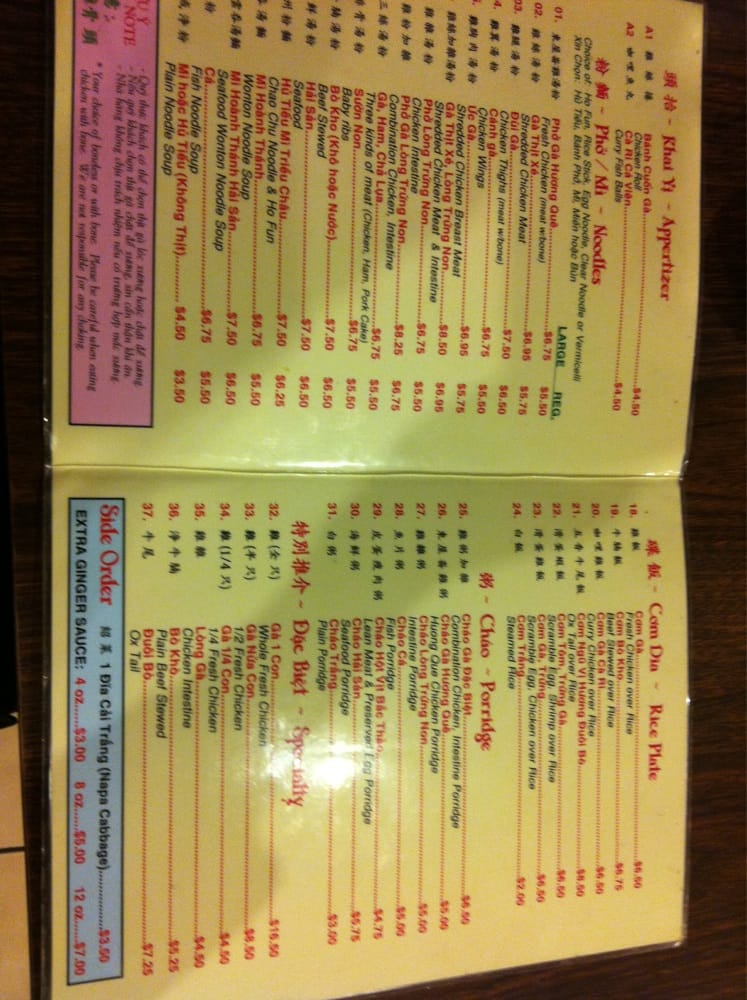 頭抬 ~ Khai Vị ~ Appertizer
A1 雞腸捲 Bánh Cuốn Gà.....$4.50
Chicken Roll
A2 咖哩魚丸 Cà Ri Cá Viên.....$4.50
Curry Fish Balls
粉麵 ~ Phở / Mì ~ Noodles
Choice of: Ho Fun, Rice Stick, Egg Noodle, Clear Noodle or Vermicelli
Xin Chọn: Hủ Tiếu, Bánh Phở, Mì, Miến hoặc Bún
LARGE REG.
01. Phở Gà Hương Quê.....$6.75 $5.50
Fresh Chicken (meat w/bone)
02. Gà Thịt Xé.....$6.95 $5.75
Shredded Chicken Meat
03. Đùi Gà.....$7.50 $6.50
Chicken Thighs (meat w/bone)
Cánh Gà.....$6.75 $5.50
Chicken Wings
Ức Gà.....$6.95 $5.75
Shredded Chicken Breast Meat
Gà Thịt Xé, Lòng Trứng Non.....$8.50 $6.95
Shredded Chicken Meat & Intestine
Phở Lòng Trứng Non.....$6.75 $5.50
Chicken Intestine
Phở Gà Lòng Trứng Non.....$8.25 $6.75
Combination Chicken, Intestine
Gà, Ham, Chả Lụa.....$6.75 $5.50
Three kinds of meat (Chicken, Ham, Pork Cake)
Sườn Non.....$6.75 $5.50
Baby ribs
Bò Kho (Khô hoặc Nước).....$7.50 $6.50
Beef Stewed
Hải Sản.....$7.50 $6.50
Seafood
Hủ Tiếu Mì Triều Châu.....$7.50 $6.25
Chao Chu Noodle & Ho Fun
Mì Hoành Thánh.....$6.75 $5.50
Wonton Noodle Soup
Mì Hoành Thánh Hải Sản.....$7.50 $6.50
Seafood Wonton Noodle Soup
Cá.....$6.75 $5.50
Fish Noodle Soup
Mì hoặc Hủ Tiếu (Không Thịt).....$4.50 $3.50
Plain Noodle Soup
NOTE
- Quý thực khách có thể chọn thịt gà lóc xương hoặc chặt để xương.
- Nếu quí khách chọn thịt gà chặt để xương, xin cẩn thận khi ăn.
- Nhà hàng không chịu trách nhiệm nếu có trường hợp mắc xương.
* Your choice of boneless or with bone. Please be careful when eating
chicken with bone. We are not responsible for any choking.
碟飯 ~ Cơm Dĩa ~ Rice Plate
18. 雞飯 Cơm Gà.....$6.50
Fresh Chicken over Rice
19. 牛腩飯 Cơm Bò Kho.....$6.75
Beef Stewed over Rice
20. 咖哩雞飯 Cơm Gà Cà Ri.....$6.50
Curry Chicken over Rice
21. 五香牛尾飯 Cơm Ngũ Vị Hương Đuôi Bò.....$8.50
Ox Tail over Rice
22. 滑蛋蝦飯 Cơm Tôm Trứng Gà.....$6.50
Scramble Egg, Shrimp over Rice
23. 滑蛋雞飯 Cơm Gà, Trứng.....$6.50
Scramble Egg, Chicken over Rice
24. 白飯 Cơm Trắng.....$2.00
Steamed Rice
粥 ~ Cháo ~ Porridge
25. 雞粥加雜 Cháo Gà Đặc Biệt.....$6.50
Combination Chicken, Intestine Porridge
26. Cháo Gà Hương Quê.....$5.00
Huong Que Chicken Porridge
27. 雞雜粥 Cháo Lòng Trứng Non.....$5.00
Intestine Porridge
28. 魚片粥 Cháo Cá.....$5.00
Fish Porridge
29. 皮蛋瘦肉粥 Cháo Hột Vịt Bắc Thảo.....$4.75
Lean Meat & Preserved Egg Porridge
30. 海鮮粥 Cháo Hải Sản.....$5.75
Seafood Porridge
31. 白粥 Cháo Trắng.....$3.00
Plain Porridge
特別推介 ~ Đặc Biệt ~ Specialty
32. 雞 (全只) Gà 1 Con.....$16.50
Whole Fresh Chicken
33. 雞 (半只) Gà Nửa Con.....$8.50
1/2 Fresh Chicken
34. 雞 (1/4 只) Gà 1/4 Con.....$4.50
1/4 Fresh Chicken
35. 雞雜 Lòng Gà.....$4.50
Chicken Intestine
36. 淨牛腩 Bò Khò.....$5.25
Plain Beef Stewed
37. 牛尾 Đuôi Bò.....$7.25
Ox Tail
Side Order 紹菜 1 Dĩa Cải Trắng (Napa Cabbage).....$3.50
EXTRA GINGER SAUCE: 4 oz.....$3.00 8 oz.....$5.00 12 oz.....$7.00